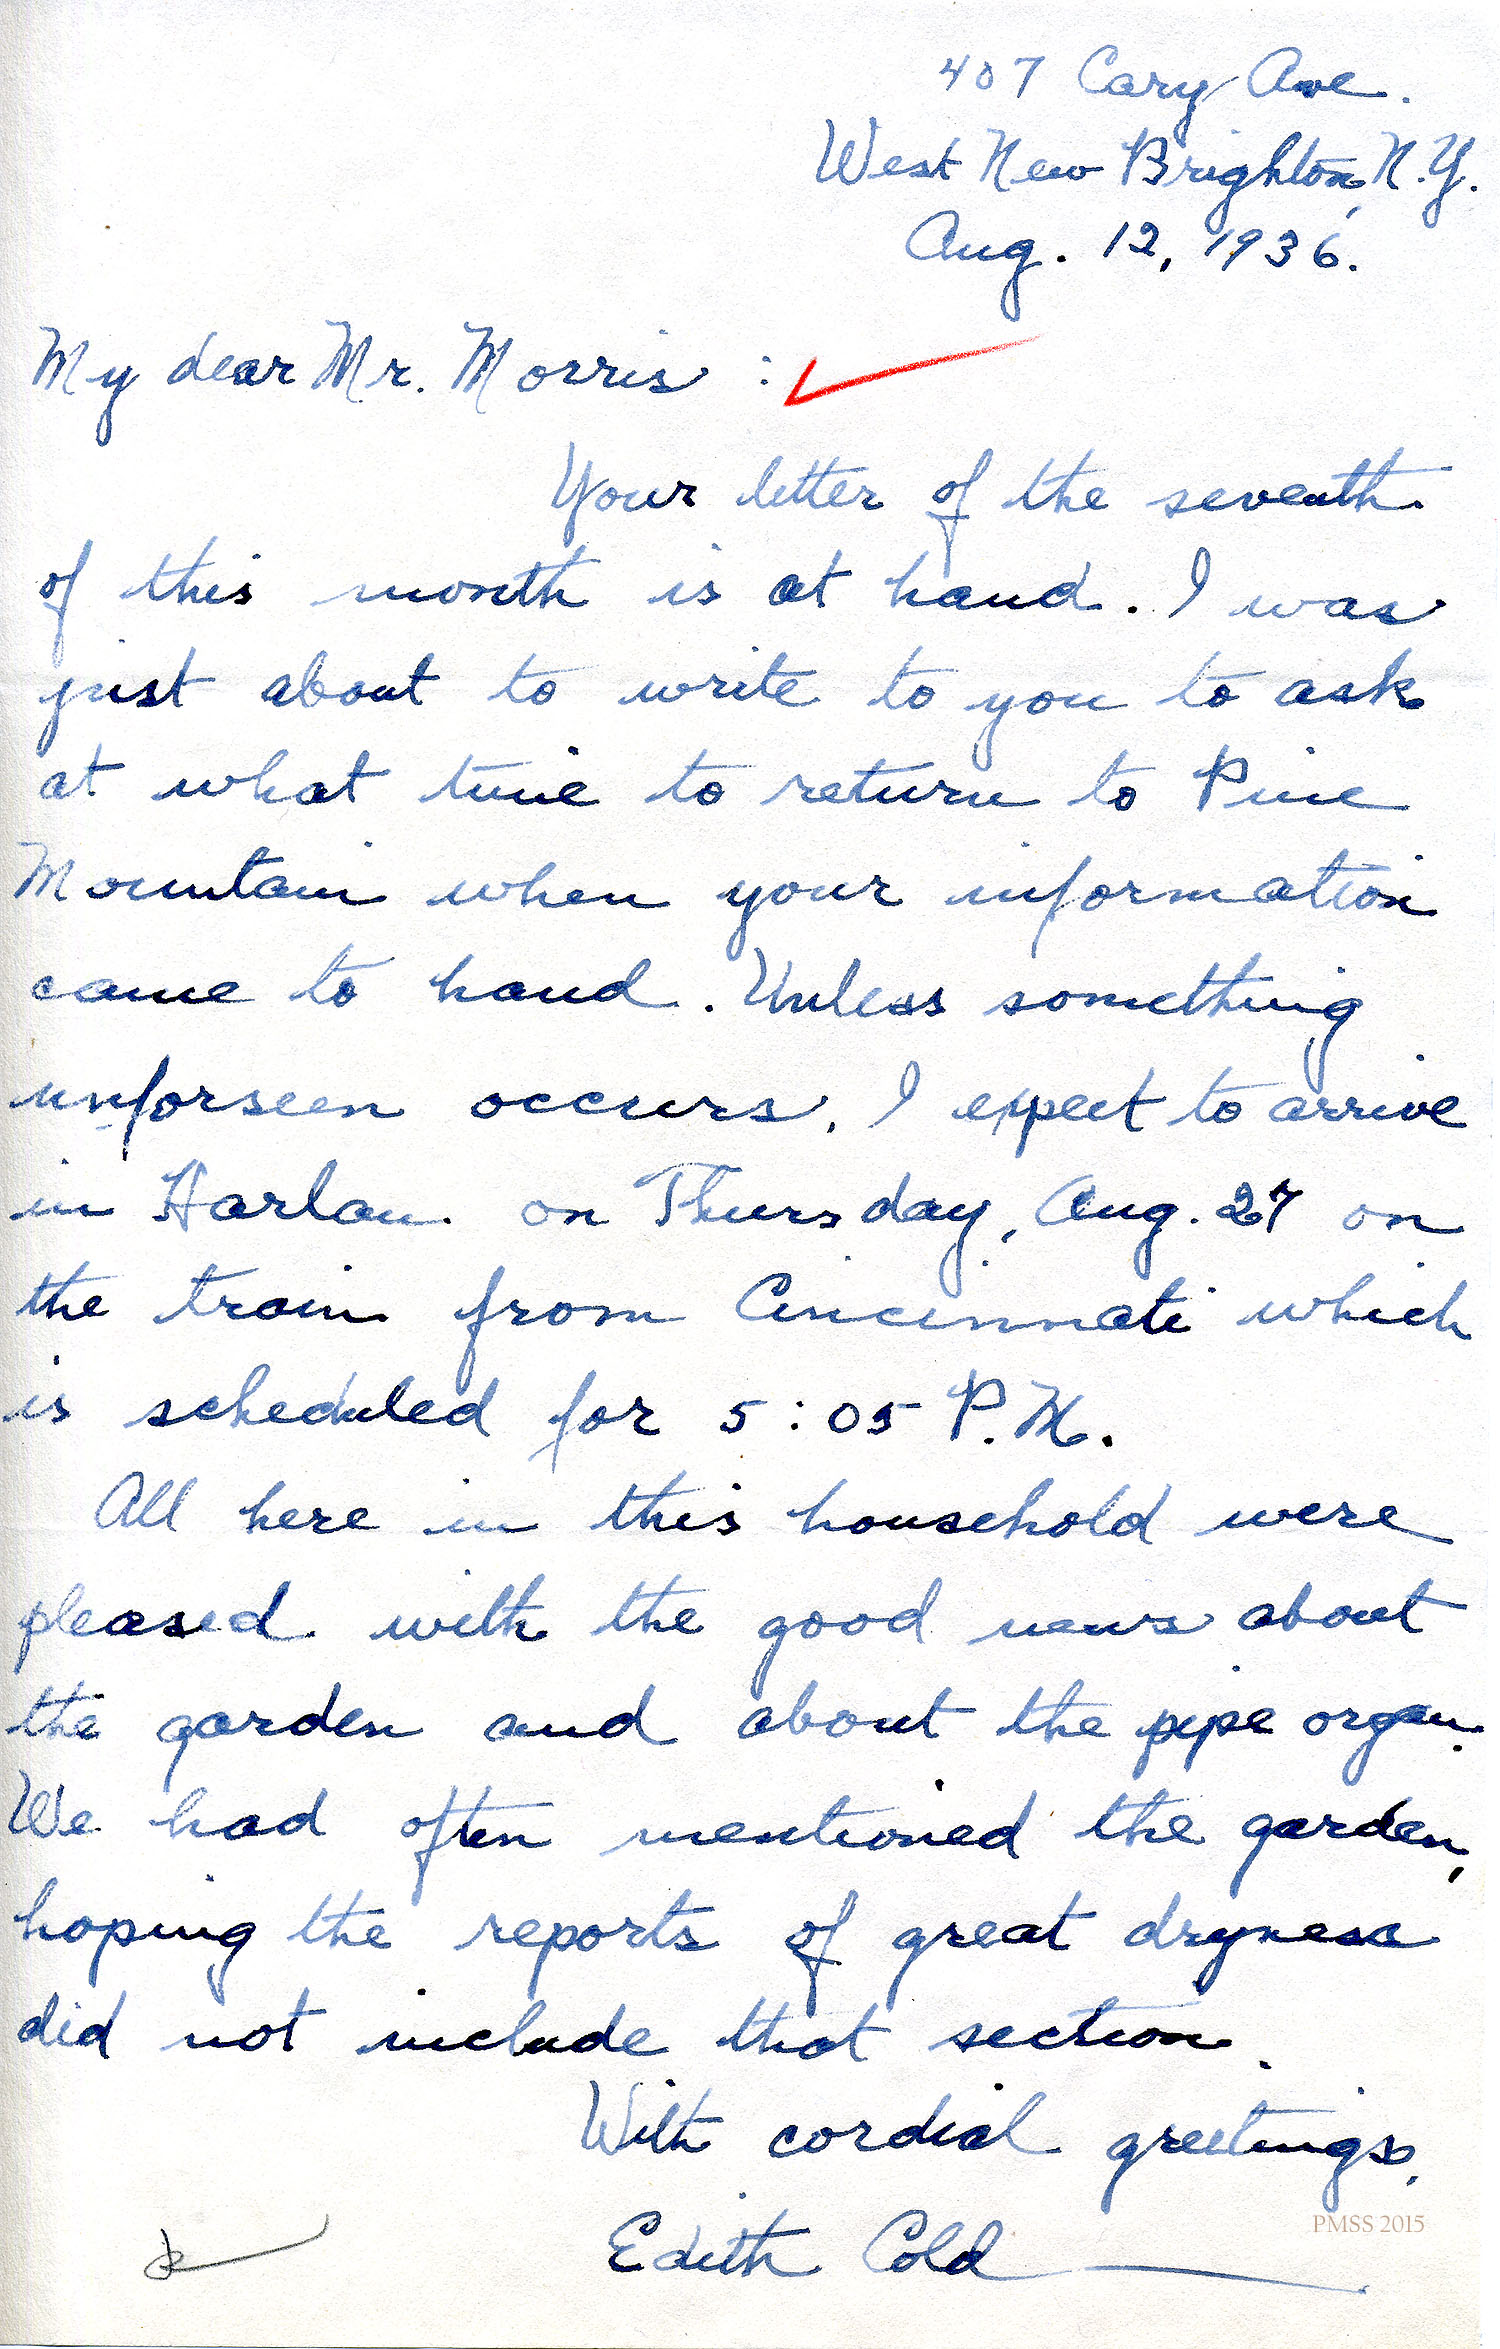 407 Cary Ave.
West New Brighton, N.Y.
Aug. 12, 1936.
My dear Mr. Morris :
Your letter of the seventh
of this month is at hand. I was
just about to write to you to ask
at what time to return to Pine
Mountain when your information
came to hand. Unless something
unforseen occurs, I expect to arrive
in Harlan on Thursday, Aug. 27 on
the train from Cincinnati which
is scheduled for 5:05 P.M.
All here in this household were
pleased with the good news about
the garden and about the pipe organ.
We had often mentioned the garden,
hoping the reports of great dryness
did not include that section.
With cordial greetings,
Edith Cold
PMSS 2015